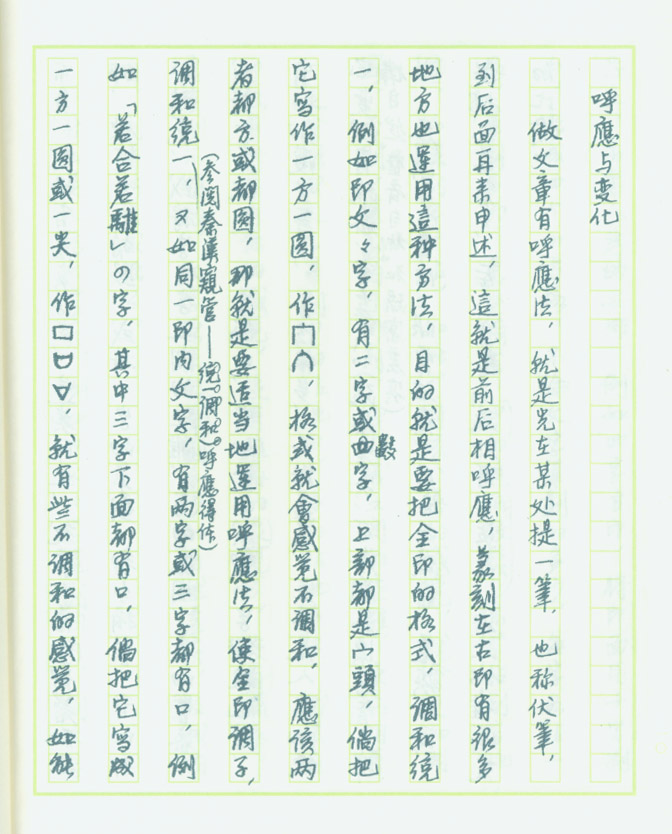 呼應与变化
做文章有呼應法，就是先在某处提一筆，也称伏筆，
到后面再来申述，這就是前后相呼應，篆刻在右印有很多
地方也運用這种方法，目的就是要把全印的格式，調和統
一，例如印文々字，有二字或數字，上部都是宀頭，倘把
它寫作一方一圓，作，格式就會感覚不調和，應该两
者都方或都圓，那就是要适当地運用呼應法，使全印調子，
（参阅秦漢窺管——統一調和）呼應得体）
調和統一，又如同一印内文字，有两字或三字都有口，例
如「若合若離」の字，其中三字下面都有口，倘把它寫成
一方一圓或一尖，作口，就有些不調和的感覚，如能